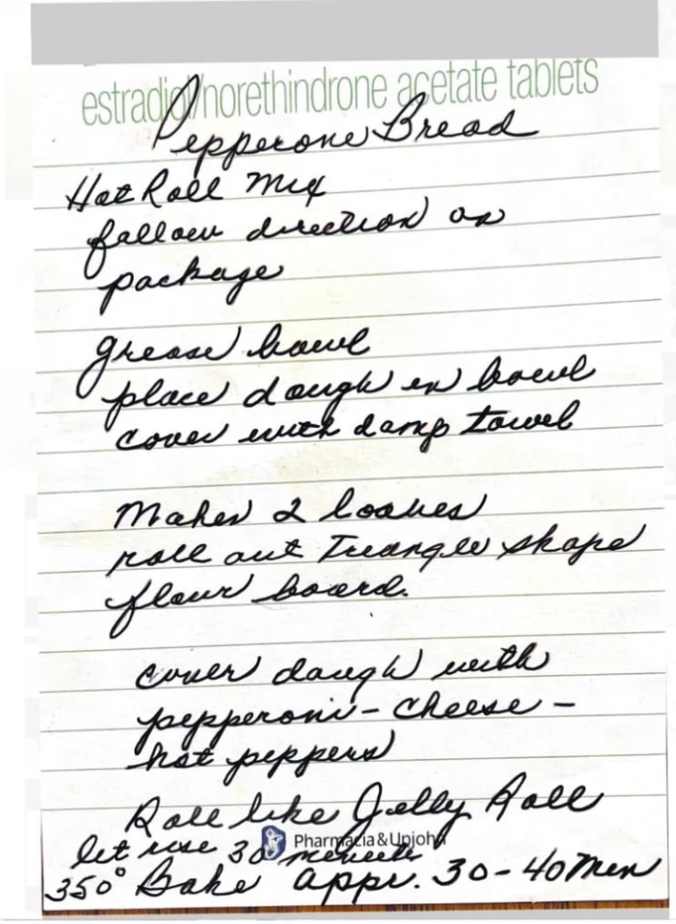 estradiol/norethindrone acetate tablets
Pepperone Bread
Hot Roll Mix
follow direction on
package
grease bowl
place dough in bowl
cover with damp towel
Makes 2 loaves
roll out Triangle shape
flour board.
cover dough with
pepperoni - cheese -
hot peppers
Roll like Jelly Roll
Pharmacia & Upjohn
let rise 30 minutes
350° Bake appr. 30-40 Min